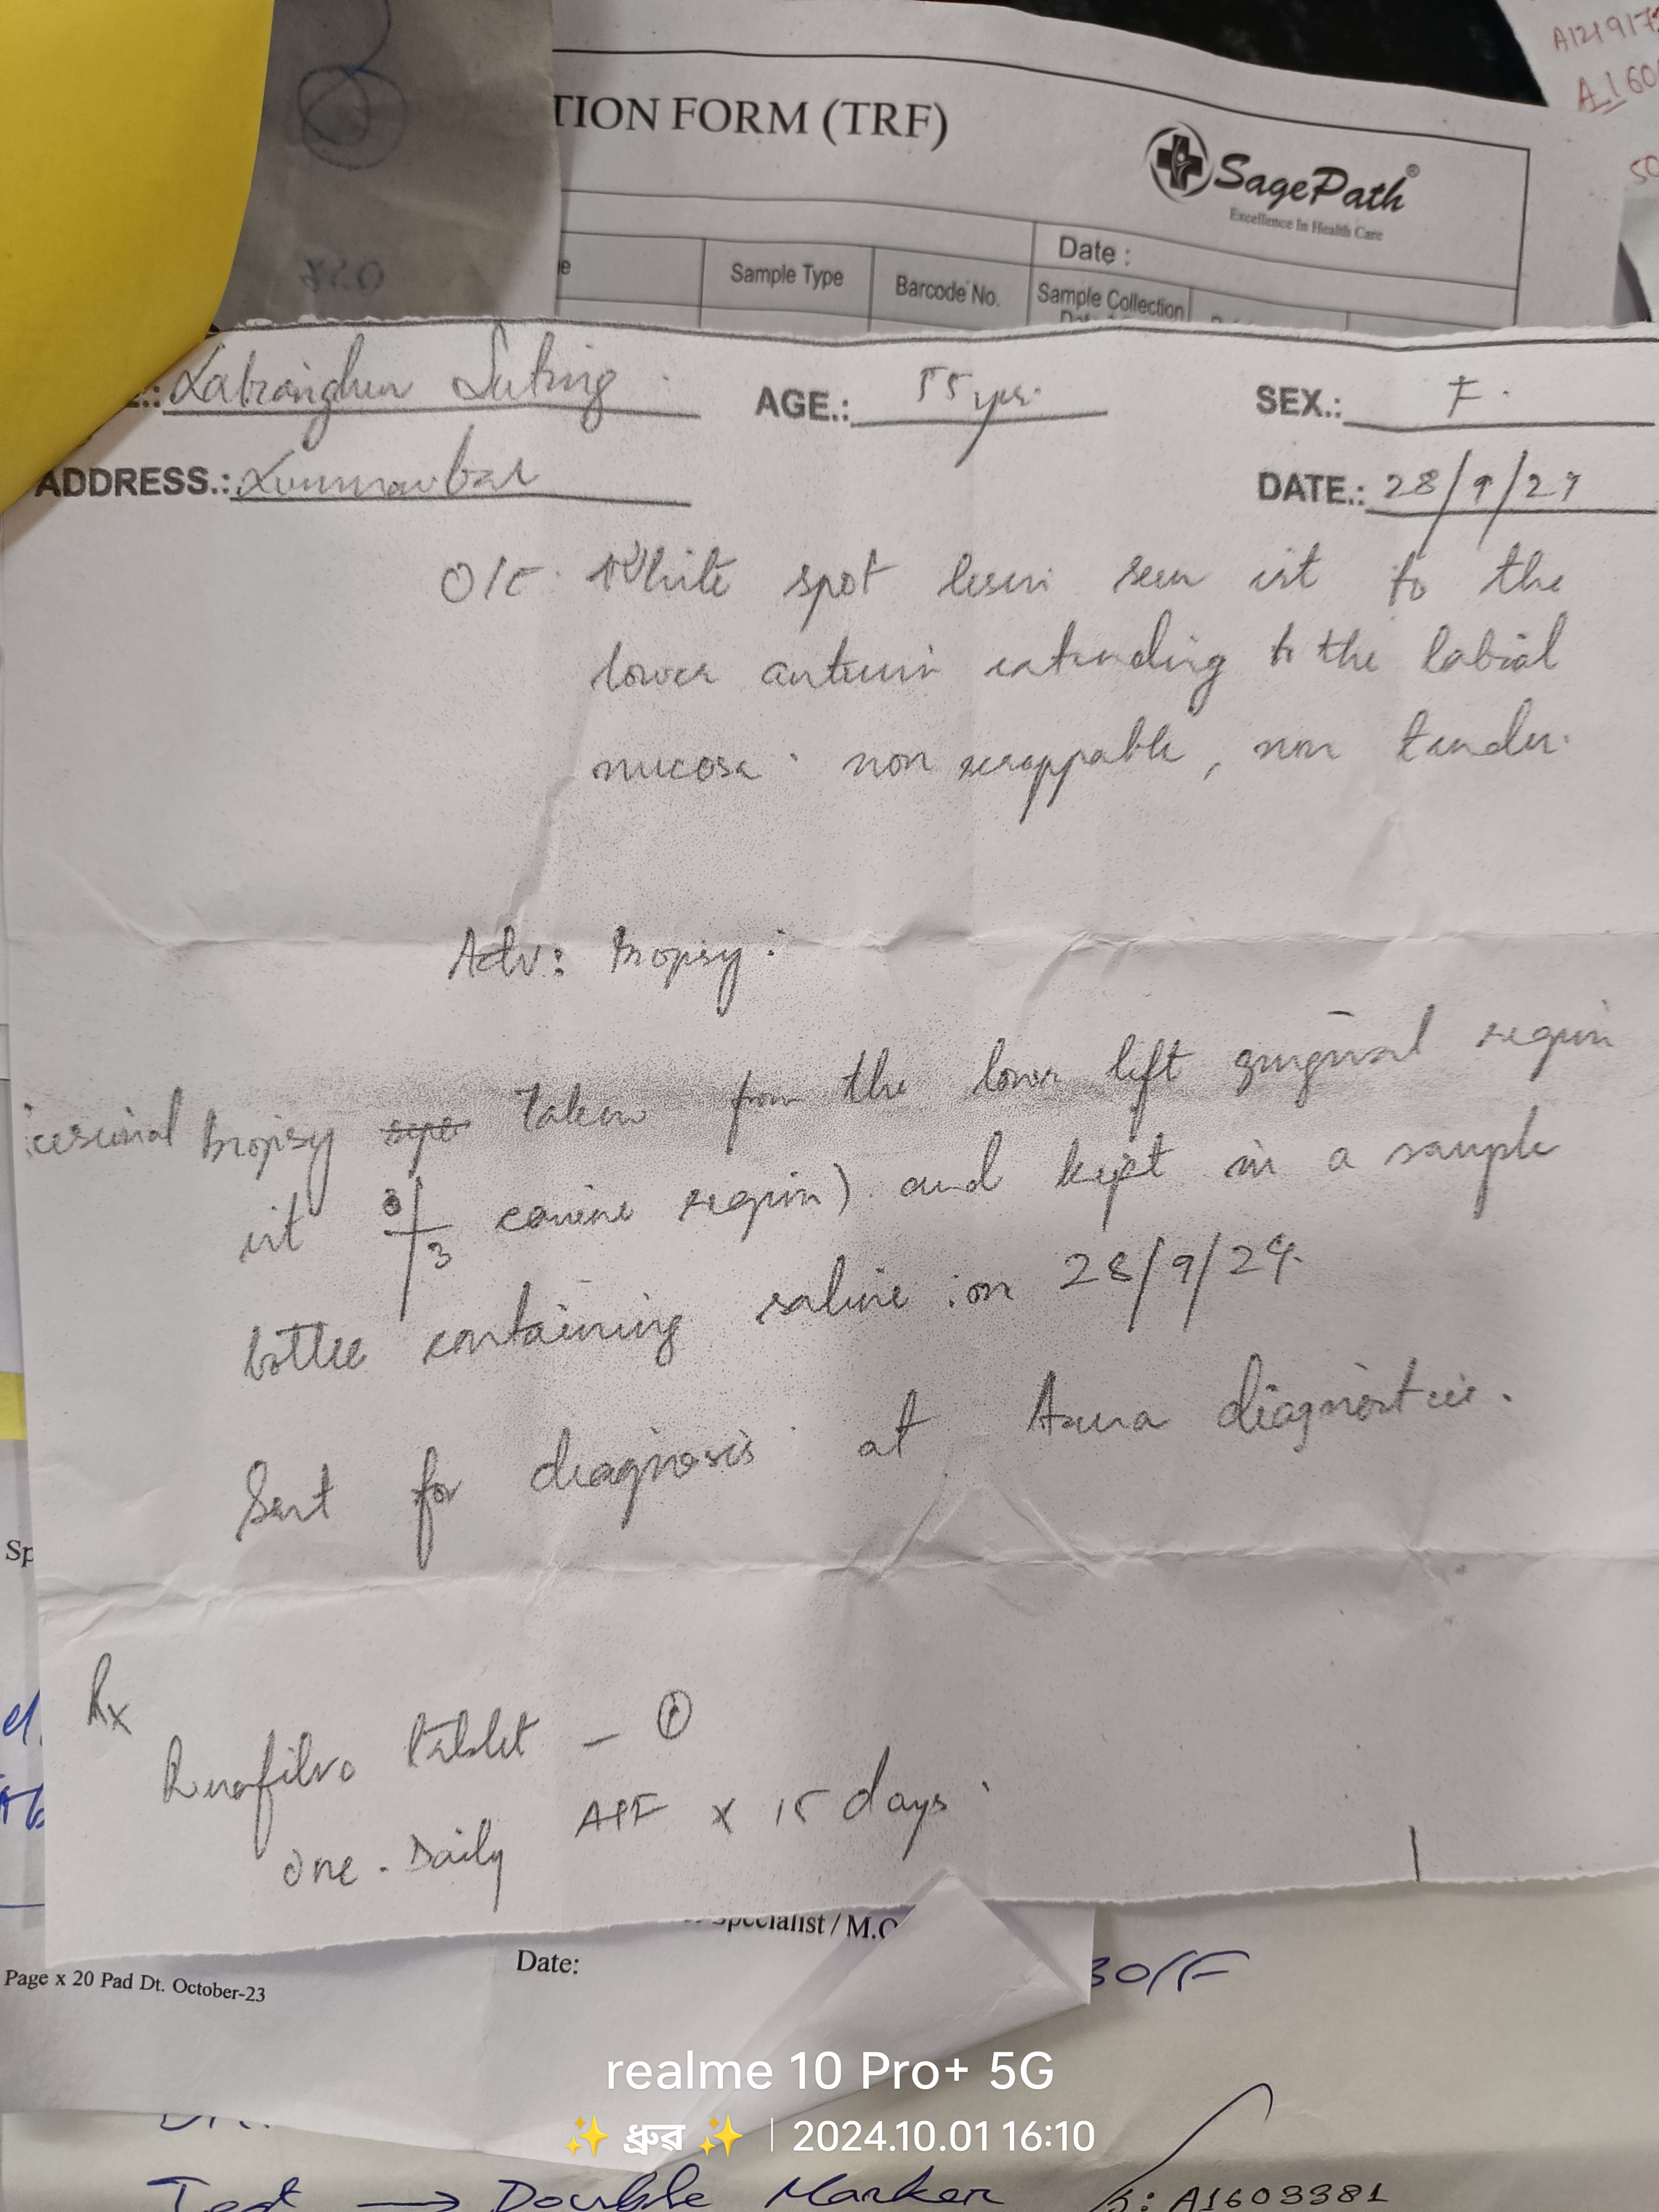 A121917
A160
50
TION FORM (TRF)
SagePath®
Excellence In Health Care
Date :
e
Sample Type
Barcode No.
Sample Collection
AGE.: 55 yrs.
SEX.: F.
ADDRESS.:
DATE.: 28/9/24
O/E: White spot lesion seen irt to the
lower anterior extending to the labial
mucosa. non scrappable, non tender.
Adv: Biopsy:
biopsy taken from the lower left gingival region
irt 3 3 canine region) and kept in a sample
bottle containing saline on 28/9/24.
Sent for diagnosis at diagnostics.
Rx
tablet - ①
one. Daily x 15 days
Sp
Specialist / M.O
Date:
Page x 20 Pad Dt. October-23
realme 10 Pro+ 5G
✨ ধ্ৰুৱ ✨ | 2024.10.01 16:10
Test → Double Marker
A1603381